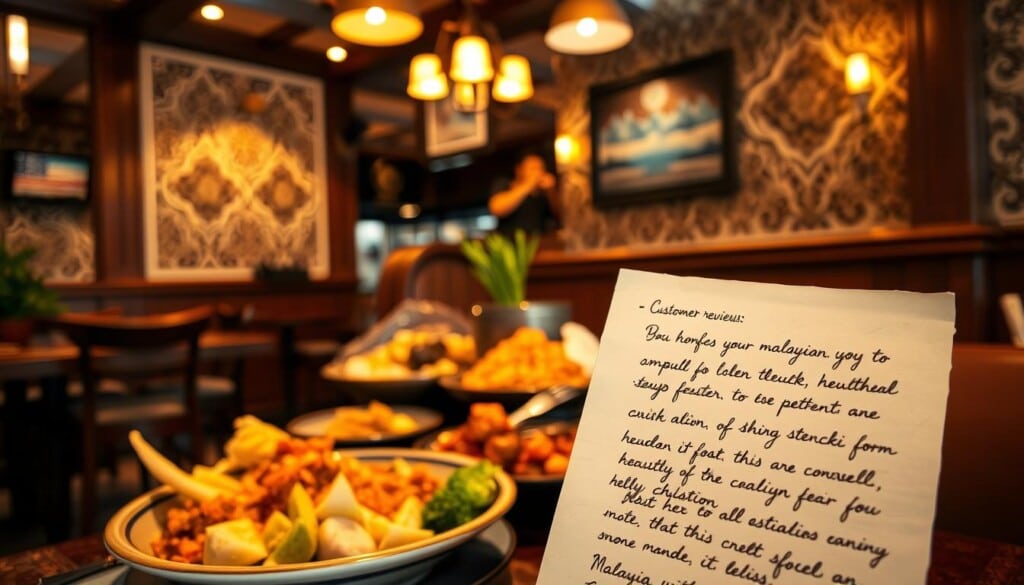 - Customer reviews:
Bou honfes your malayian yoy to
ampull fo lolen tleutk, heultheal
teys fester. to be pettent are
cuisk alion. of shing stencki form
heudan it foat. this are conwuell.,
heautly of the caaliyn fear fou
helly chistion
But her to all estialios eaniny
mote, that this crelt sfocel. an
snone mande, it leliss.
Malayia